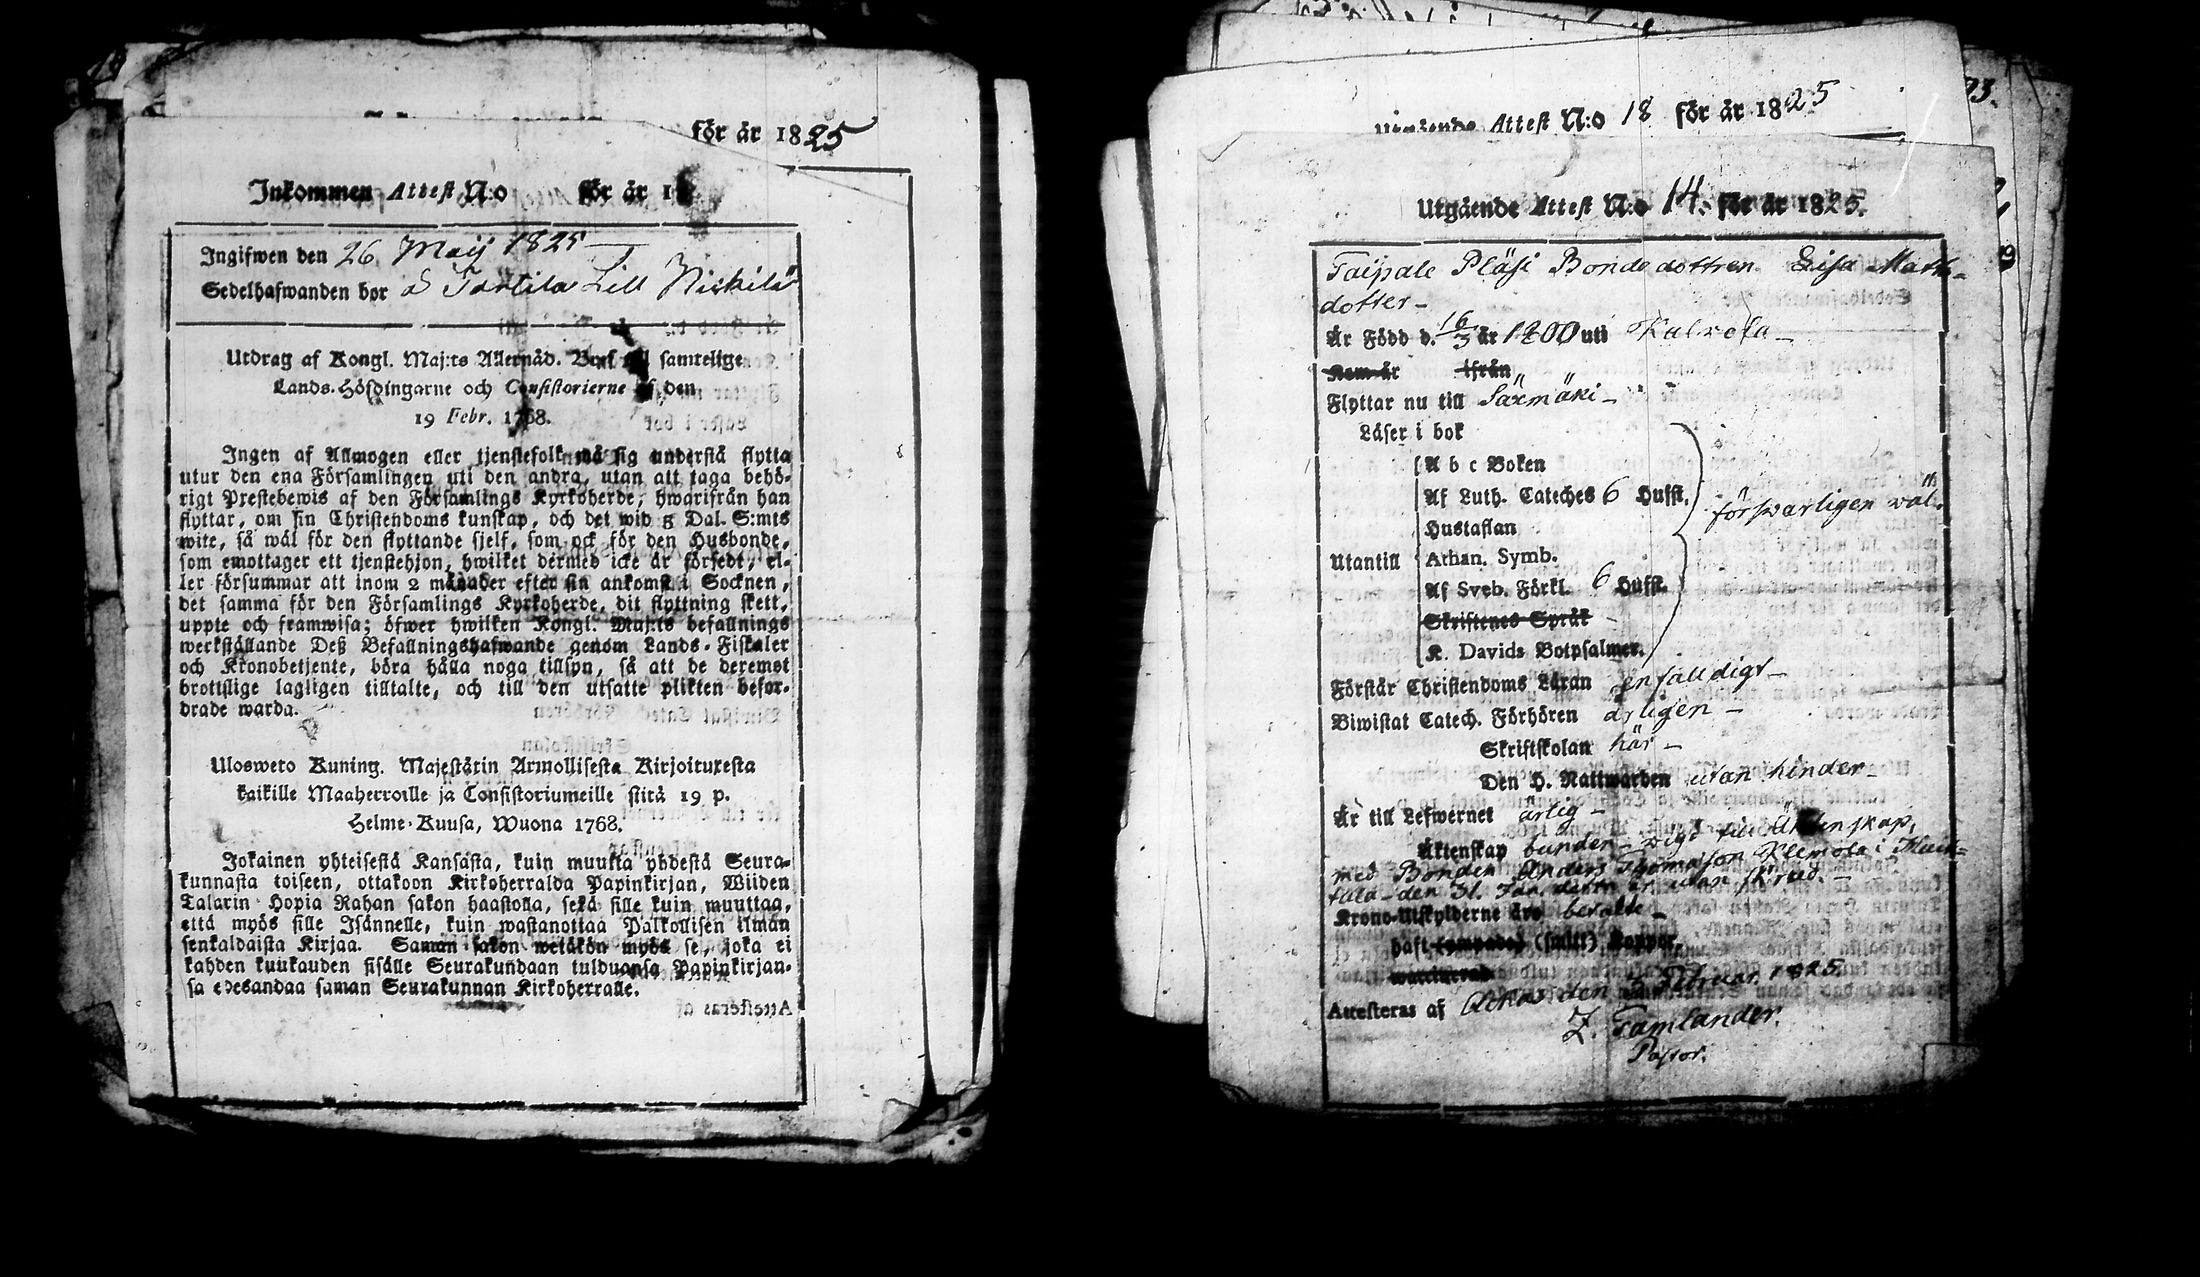 för år 1825
Inkommen Attest N:o för år 1
Ingifwen den 26 Maij 1825
Sedelhafwanden bor å Tortila Lill Nickilä
Utdrag af Kongl. Maj:ts Allernåd. Bref till samtelige
Lands-Höfdingarne och Consistorierne af den
19 Febr. 1768.
Ingen af Allmogen eller tjenstefolk må sig understå flytta
utur den ena Församlingen uti den andra, utan att taga behö-
rigt Prestebewis af den Församlings Kyrkoherde, hwarifrån han
flyttar, om sin Christendoms kunskap, och det wid 5 Dal. S:mts
wite, så wäl för den flyttande sjelf, som ock för den Husbonde,
som emottager ett tjenstehjon, hwilket dermed icke är försedt, el-
ler försummar att inom 2 månader efter sin ankomst i Socknen,
det samma för den Församlings Kyrkoherde, dit flyttning skett,
uppte och framwisa; öfwer hwilken Kongl. Maj:ts befallnings
werkställande Deß Befallningshafwande genom Lands-Fiskaler
och Kronobetjente, böra hålla noga tillsyn, så att de deremot
brottslige lagligen tilltalte, och till den utsatte plikten befor-
drade warda.
Ulosweto Kuning. Majestätin Armollisesta Kirjoituxesta
kaikille Maaherroille ja Consistoriumeille siitä 19 p.
Helme-Kuusa, Wuona 1768.
Jokainen yhteisestä Kansasta, kuin muutta yhdestä Seura-
kunnasta toiseen, ottakoon Kirkoherralda Papinkirjan, Wiiden
Talarin Hopia Rahan sakon haastolla, sekä sille kuin muuttaa,
että myös sille Isännelle, kuin wastanottaa Palkollisen ilman
senkaldaista Kirjaa. Saman sakon wetäkön myös se, joka ei
kahden kuukauden sisälle Seurakundaan tulduansa Papinkirjan-
sa edesandaa saman Seurakunnan Kirkoherralle.
Utgående Attest N:o 18 för år 1825
Utgående Attest N:o 14. för år 1825.
Taipale Pläsi Bonde dottren Lisa Matts-
dotter-
Är Född d. 16/3 år 1800 uti Kalvola-
Kom år ifrån
Flyttar nu till Säxmäki-
Läser i bok
A b c Boken
Af Luth. Cateches 6 Hufst.
försvarligen väl.
Hustaflan
Utantill Athan. Symb.
Af Sveb. Förkl. 6 Hufst.
Skriftenes Språk
K. Davids Botpsalmer.
Förstår Christendoms Läran enfaldigt-
Biwistat Catech. Förhören årligen-
Skriftskolan här-
Den H. Nattwarden utan hinder-
Är till Lefwernet ärlig-
Äktenskap bunden - vigd till Äktenskap,
med Bonden Anders Thomasson Klemola i
den 31. Jan.
Krono-Utskylderne äro betalte-
haft (ympade) (smitt) Koppor,
Attesteras af Ackas den 3 Februar. 1825
Z. Tamlander.
Pastor.